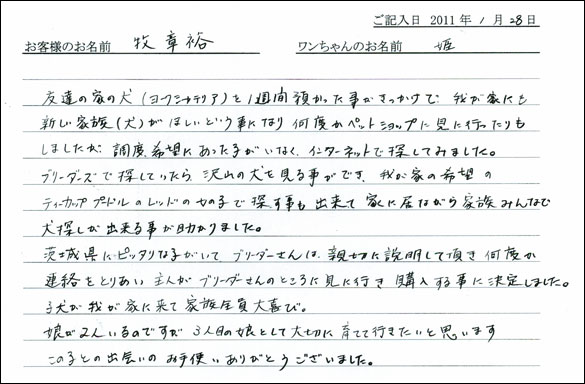 ご記入日 2011年 1月 28日
お客様のお名前 牧 章裕 ワンちゃんのお名前 姫
友達の家の犬(ヨークシャテリア)を1週間預かった事がきっかけで 我が家にも
新しい家族(犬)がほしいという事になり 何度かペットショップに見に行ったりも
しましたが 調度、希望にあった子がいなく、インターネットで探してみました。
ブリーダーズで探していたら、沢山の犬を見る事ができ、我が家の希望の
ティーカッププードルのレッドの女の子で探す事も出来て 家に居ながら家族みんなで
犬探しが出来る事が助かりました。
茨城県にピッタリな子がいて ブリーダーさんは、親切に説明して頂き 何度か
連絡をとりあい 主人がブリーダーさんのところに見に行き 購入する事に決定しました。
子犬が我が家に来て 家族全員大喜び。
娘が2人いるのですが 3人目の娘として大切に育てて行きたいと思います
この子との出会いのお手使いありがとうございました。